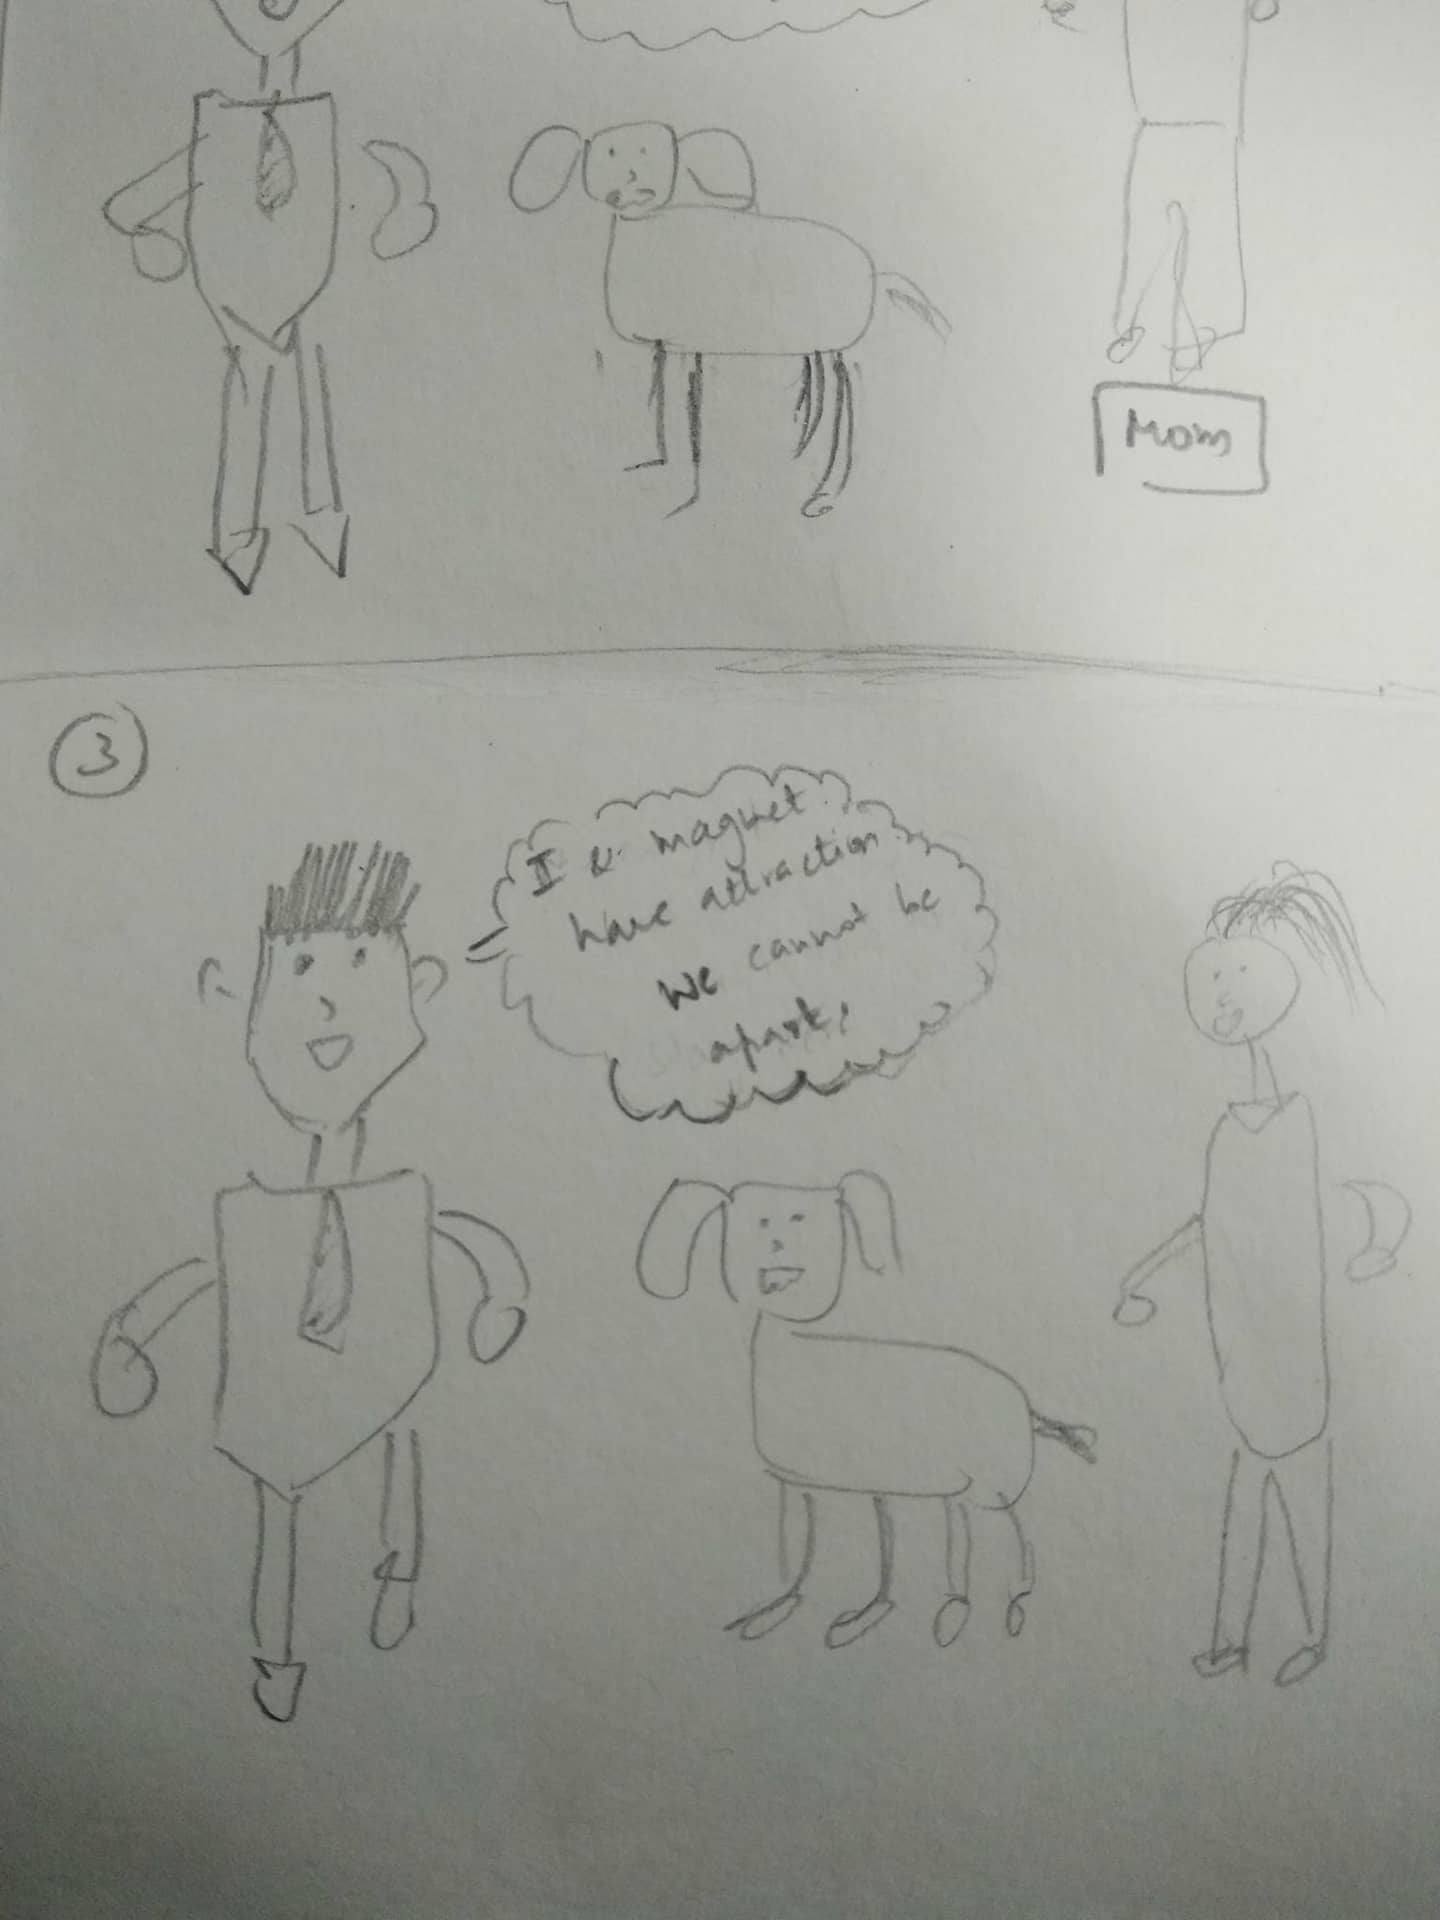 Mom
3
I & magnet
have attraction
We cannot be
apart.